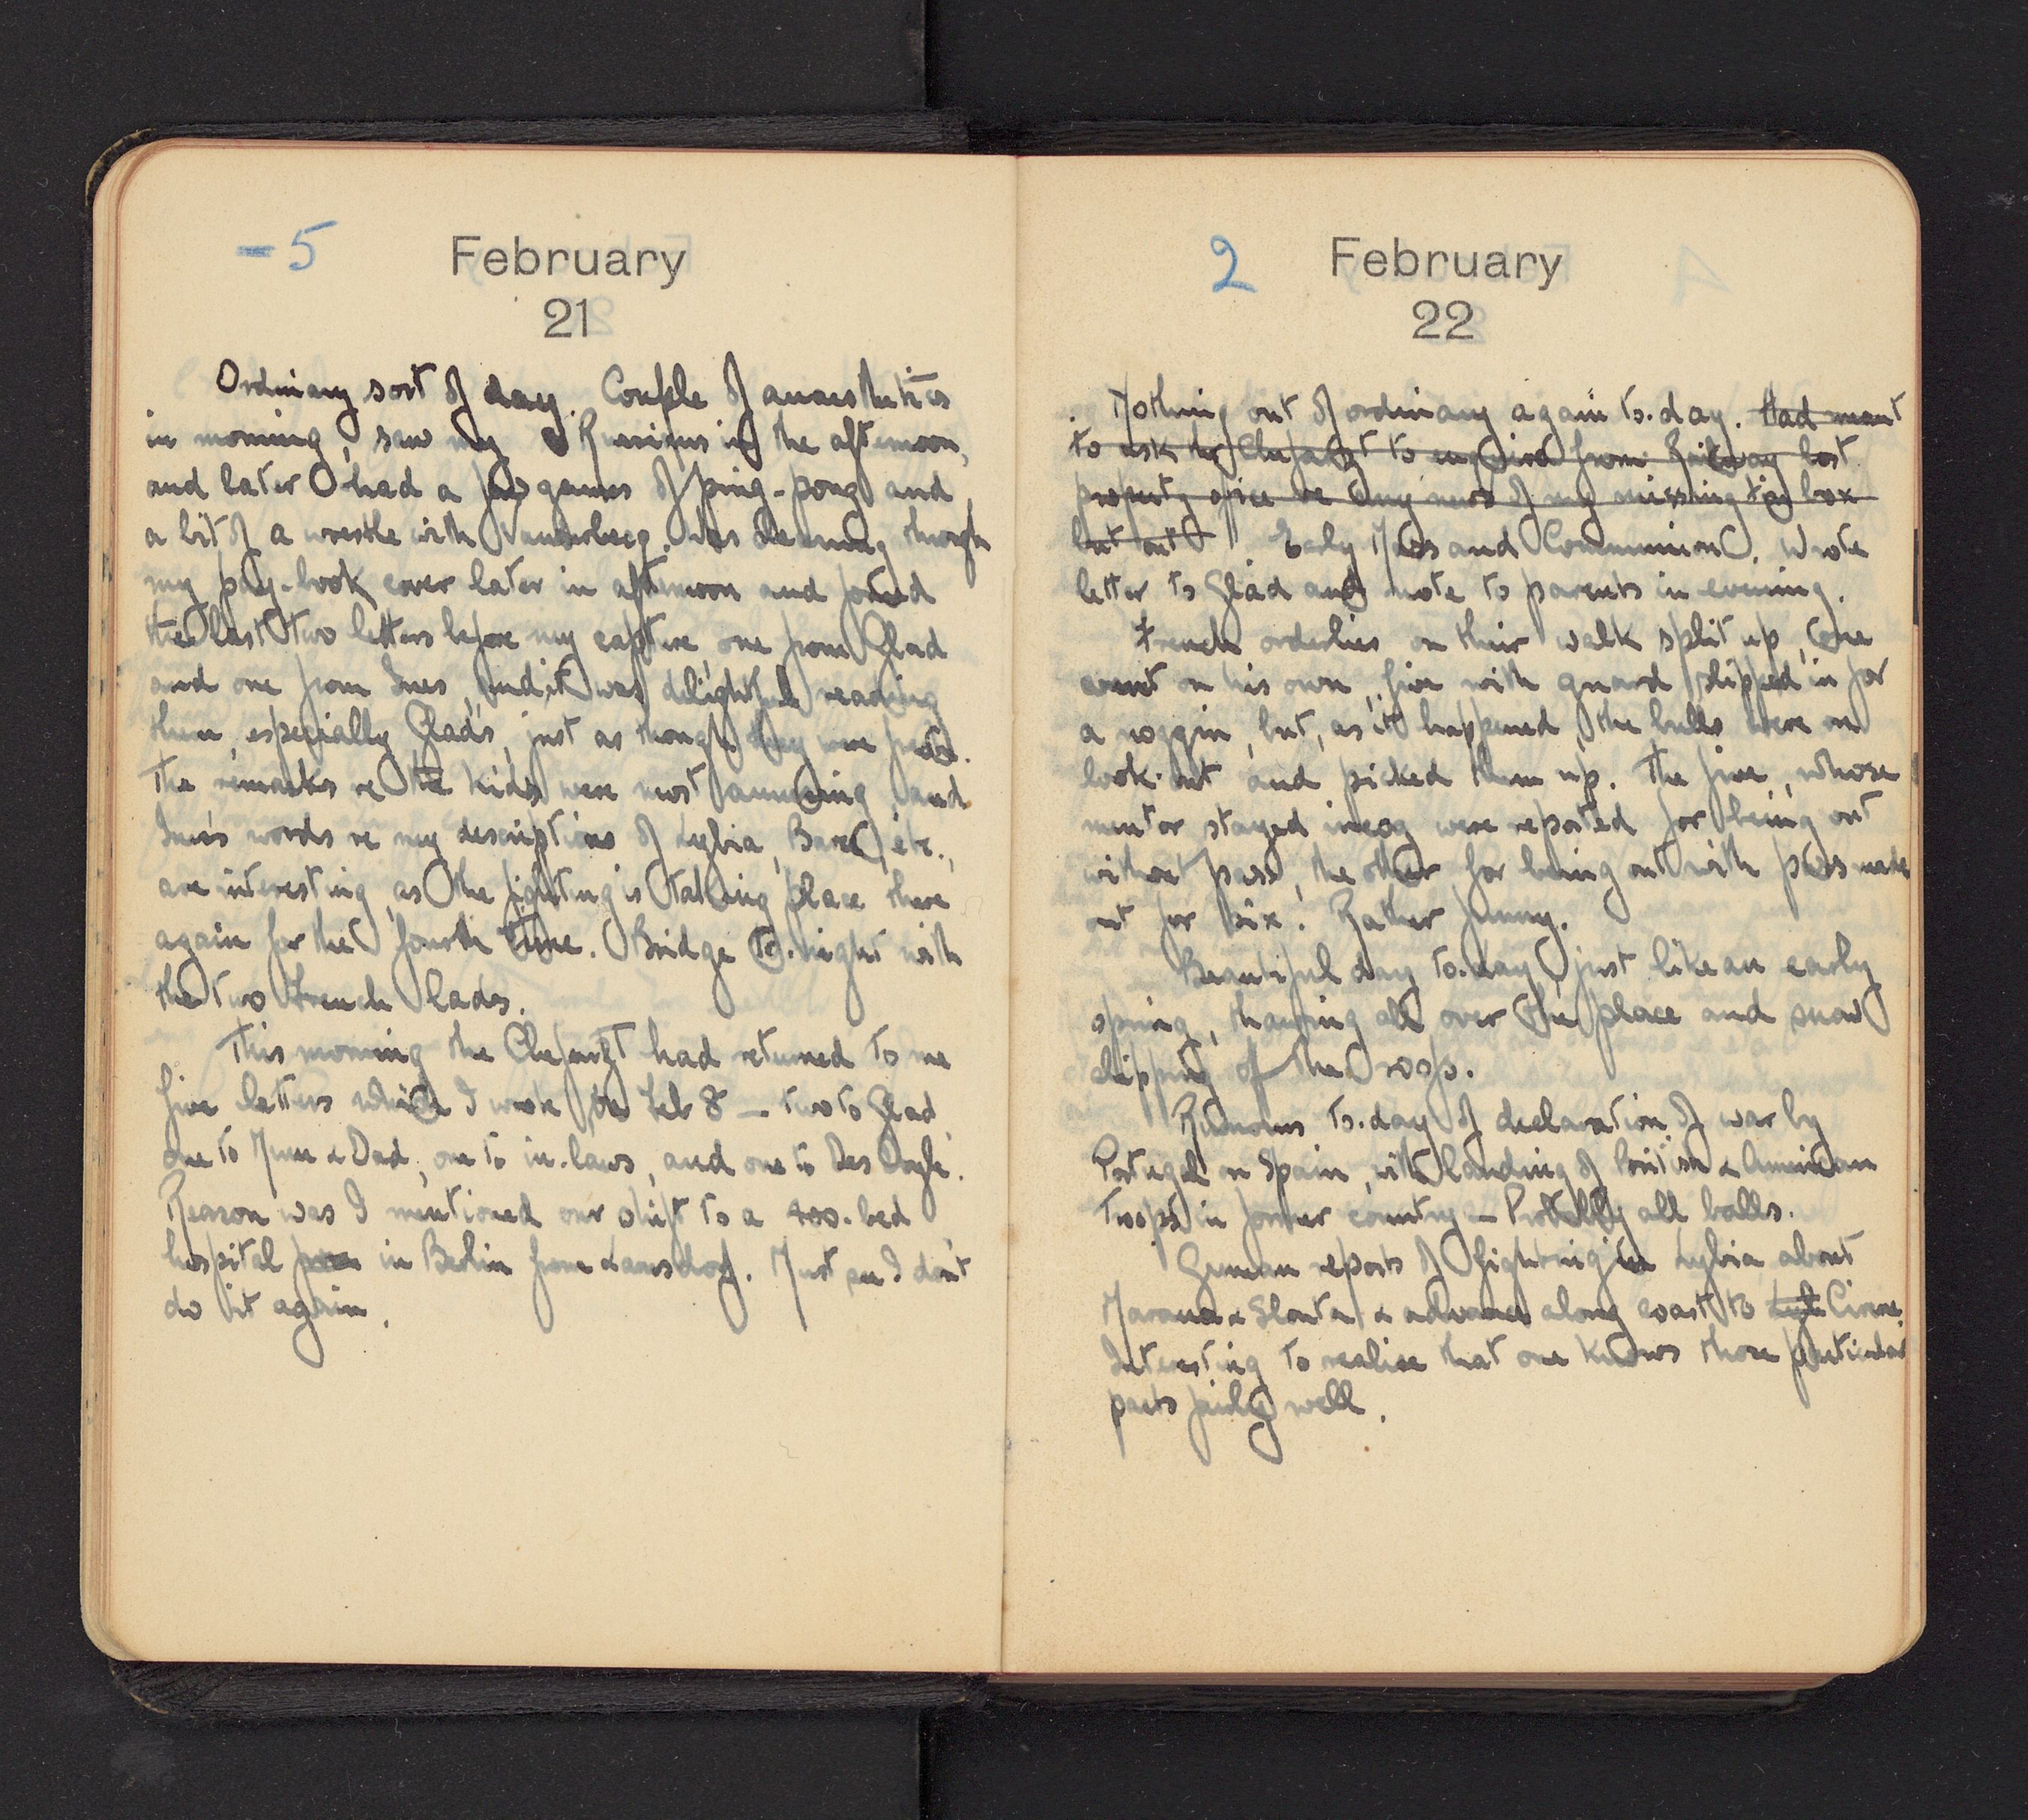 -5
February
21
Ordinary sort of day. Couple of anaesthetics
in morning, saw my Russians in the afternoon,
and later had a few games of ping-pong and
a bit of a wrestle with Was cleaning through
my pay-book cover later in afternoon and found
the last two letters before my capture, one from Glad
and one from Ines, and it was delightful reading
them, especially Glad's, just as though they were fresh.
The remarks re the kids were most amusing, and
Ines's words re my descriptions of Lybia, Barce, etc.,
are interesting, as the fighting is taking place there
again for the fourth time. Bridge to-night with
the two French lads.
This morning the Chefarzt had returned to me
five letters which I wrote on Feb 8 - two to Glad,
one to Mum & Dad, one to in-laws, and one to Des Doyle.
Reason was I mentioned our shift to a 400-bed
hospital in Berlin from Lamsdorf. Must see I don't
do it again.
2
February
22
Nothing out of ordinary again to-day. Had meant
to ask the Chefarzt to enquire from Railway lost
property office re any news of my missing tin box
but Early Mass and Communion. Wrote
letter to Glad and note to parents in evening.
French orderlies on their walk split up, one
went on his own, five with guard slipped in for
a noggin, but, as it happened, the bulls were on
look-out and picked them up. The five, whose
mentor stayed incog were reported for being out
without pass, the other for being out with pass made
out for six. Rather funny.
Beautiful day to-day, just like an early
spring, thawing all over the place and snow
dripping off the roofs.
Rumours to-day of declaration of war by
Portugal on Spain, with landing of British & American
troops in former country - Probably all balls.
German reports of fighting in Lybia about
Maraua & Slonta & advance along coast to Cirene.
Interesting to realise that one knows those particular
parts fairly well.